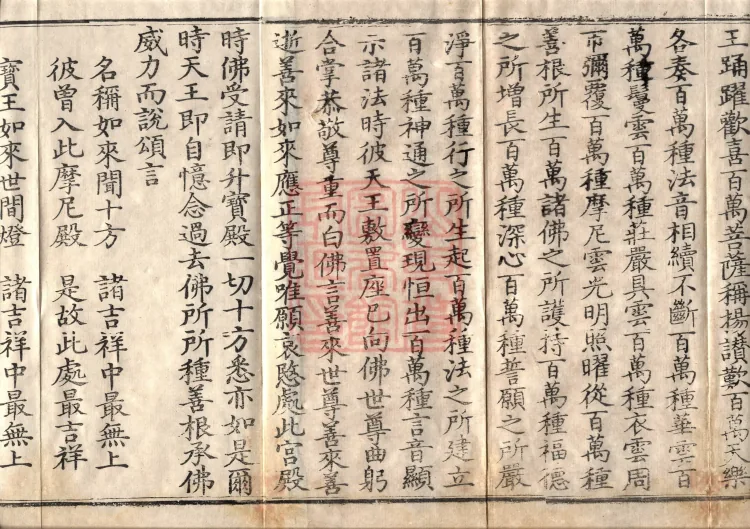 王踊躍歡喜百萬菩薩稱揚讃歎百萬天樂
各奏百萬種法音相續不斷百萬種華雲百
萬種鬘雲百萬種莊嚴具雲百萬種衣雲周
帀彌覆百萬種摩尼雲光明照曜從百萬種
善根所生百萬諸佛之所護持百萬種福德
之所增長百萬種深心百萬種誓願之所嚴
淨百萬種行之所生起百萬種法之所建立
百萬種神通之所變現恒出百萬種言音顯
示諸法時彼天王敷置座已向佛世尊曲躬
合掌恭敬尊重而白佛言善來世尊善來善
逝善來如來應正等覺唯願哀愍處此宮殿
時佛受請即升寶殿一切十方悉亦如是爾
時天王即自憶念過去佛所所種善根承佛
威力而說頌言
名稱如來聞十方　諸吉祥中最無上
彼曾入此摩尼殿　是故此處最吉祥
寶王如來世間燈　諸吉祥中最無上